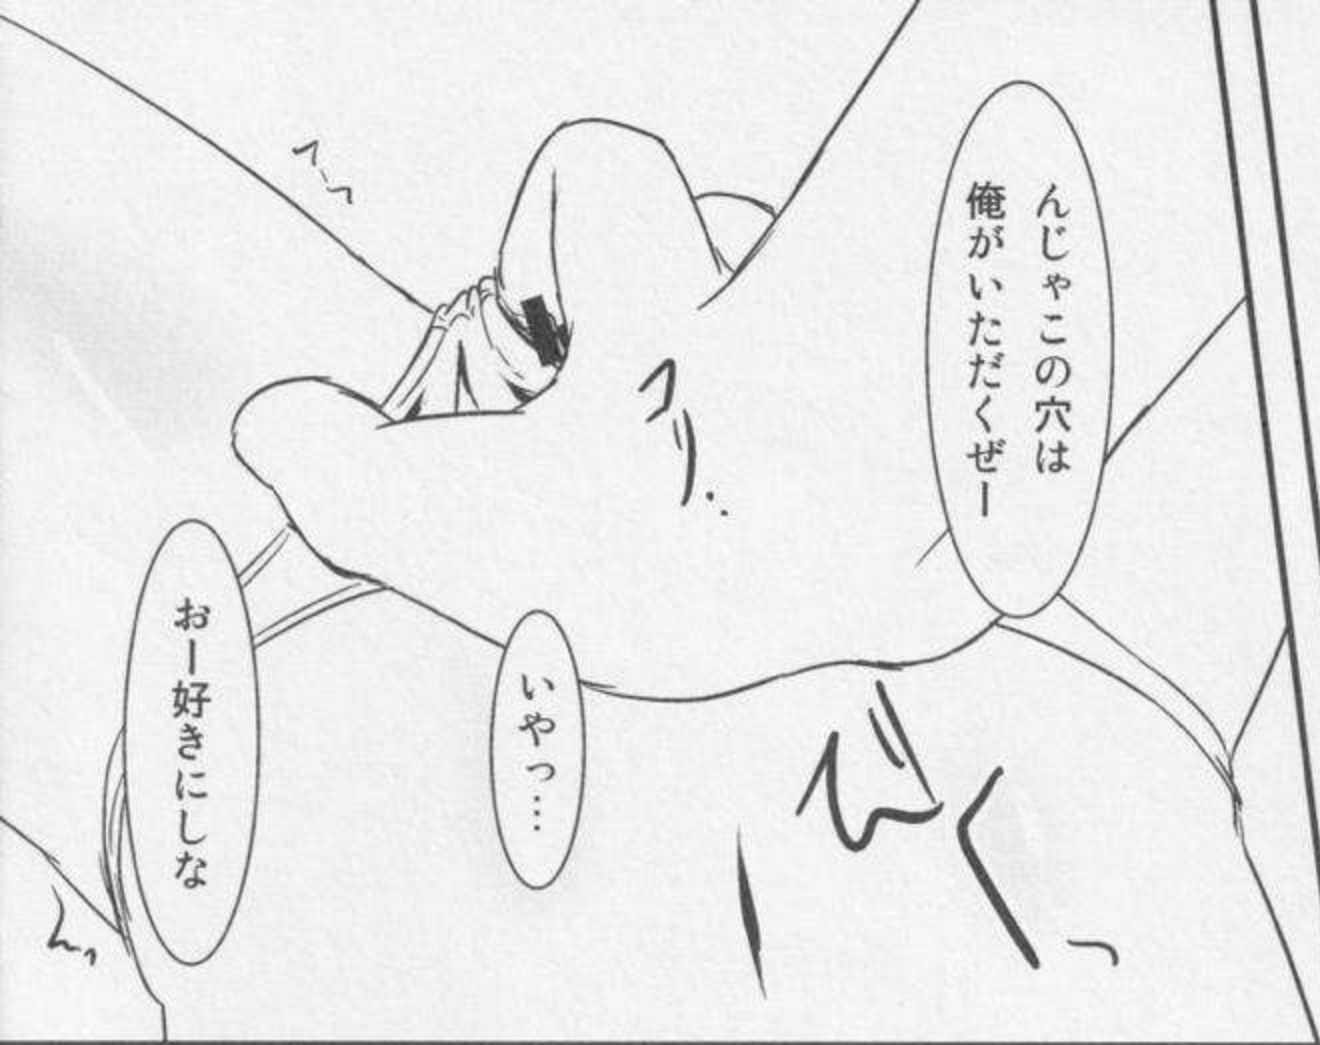 んじゃこの穴は
俺がいただくぜー
いやっ…
おー好きにしな